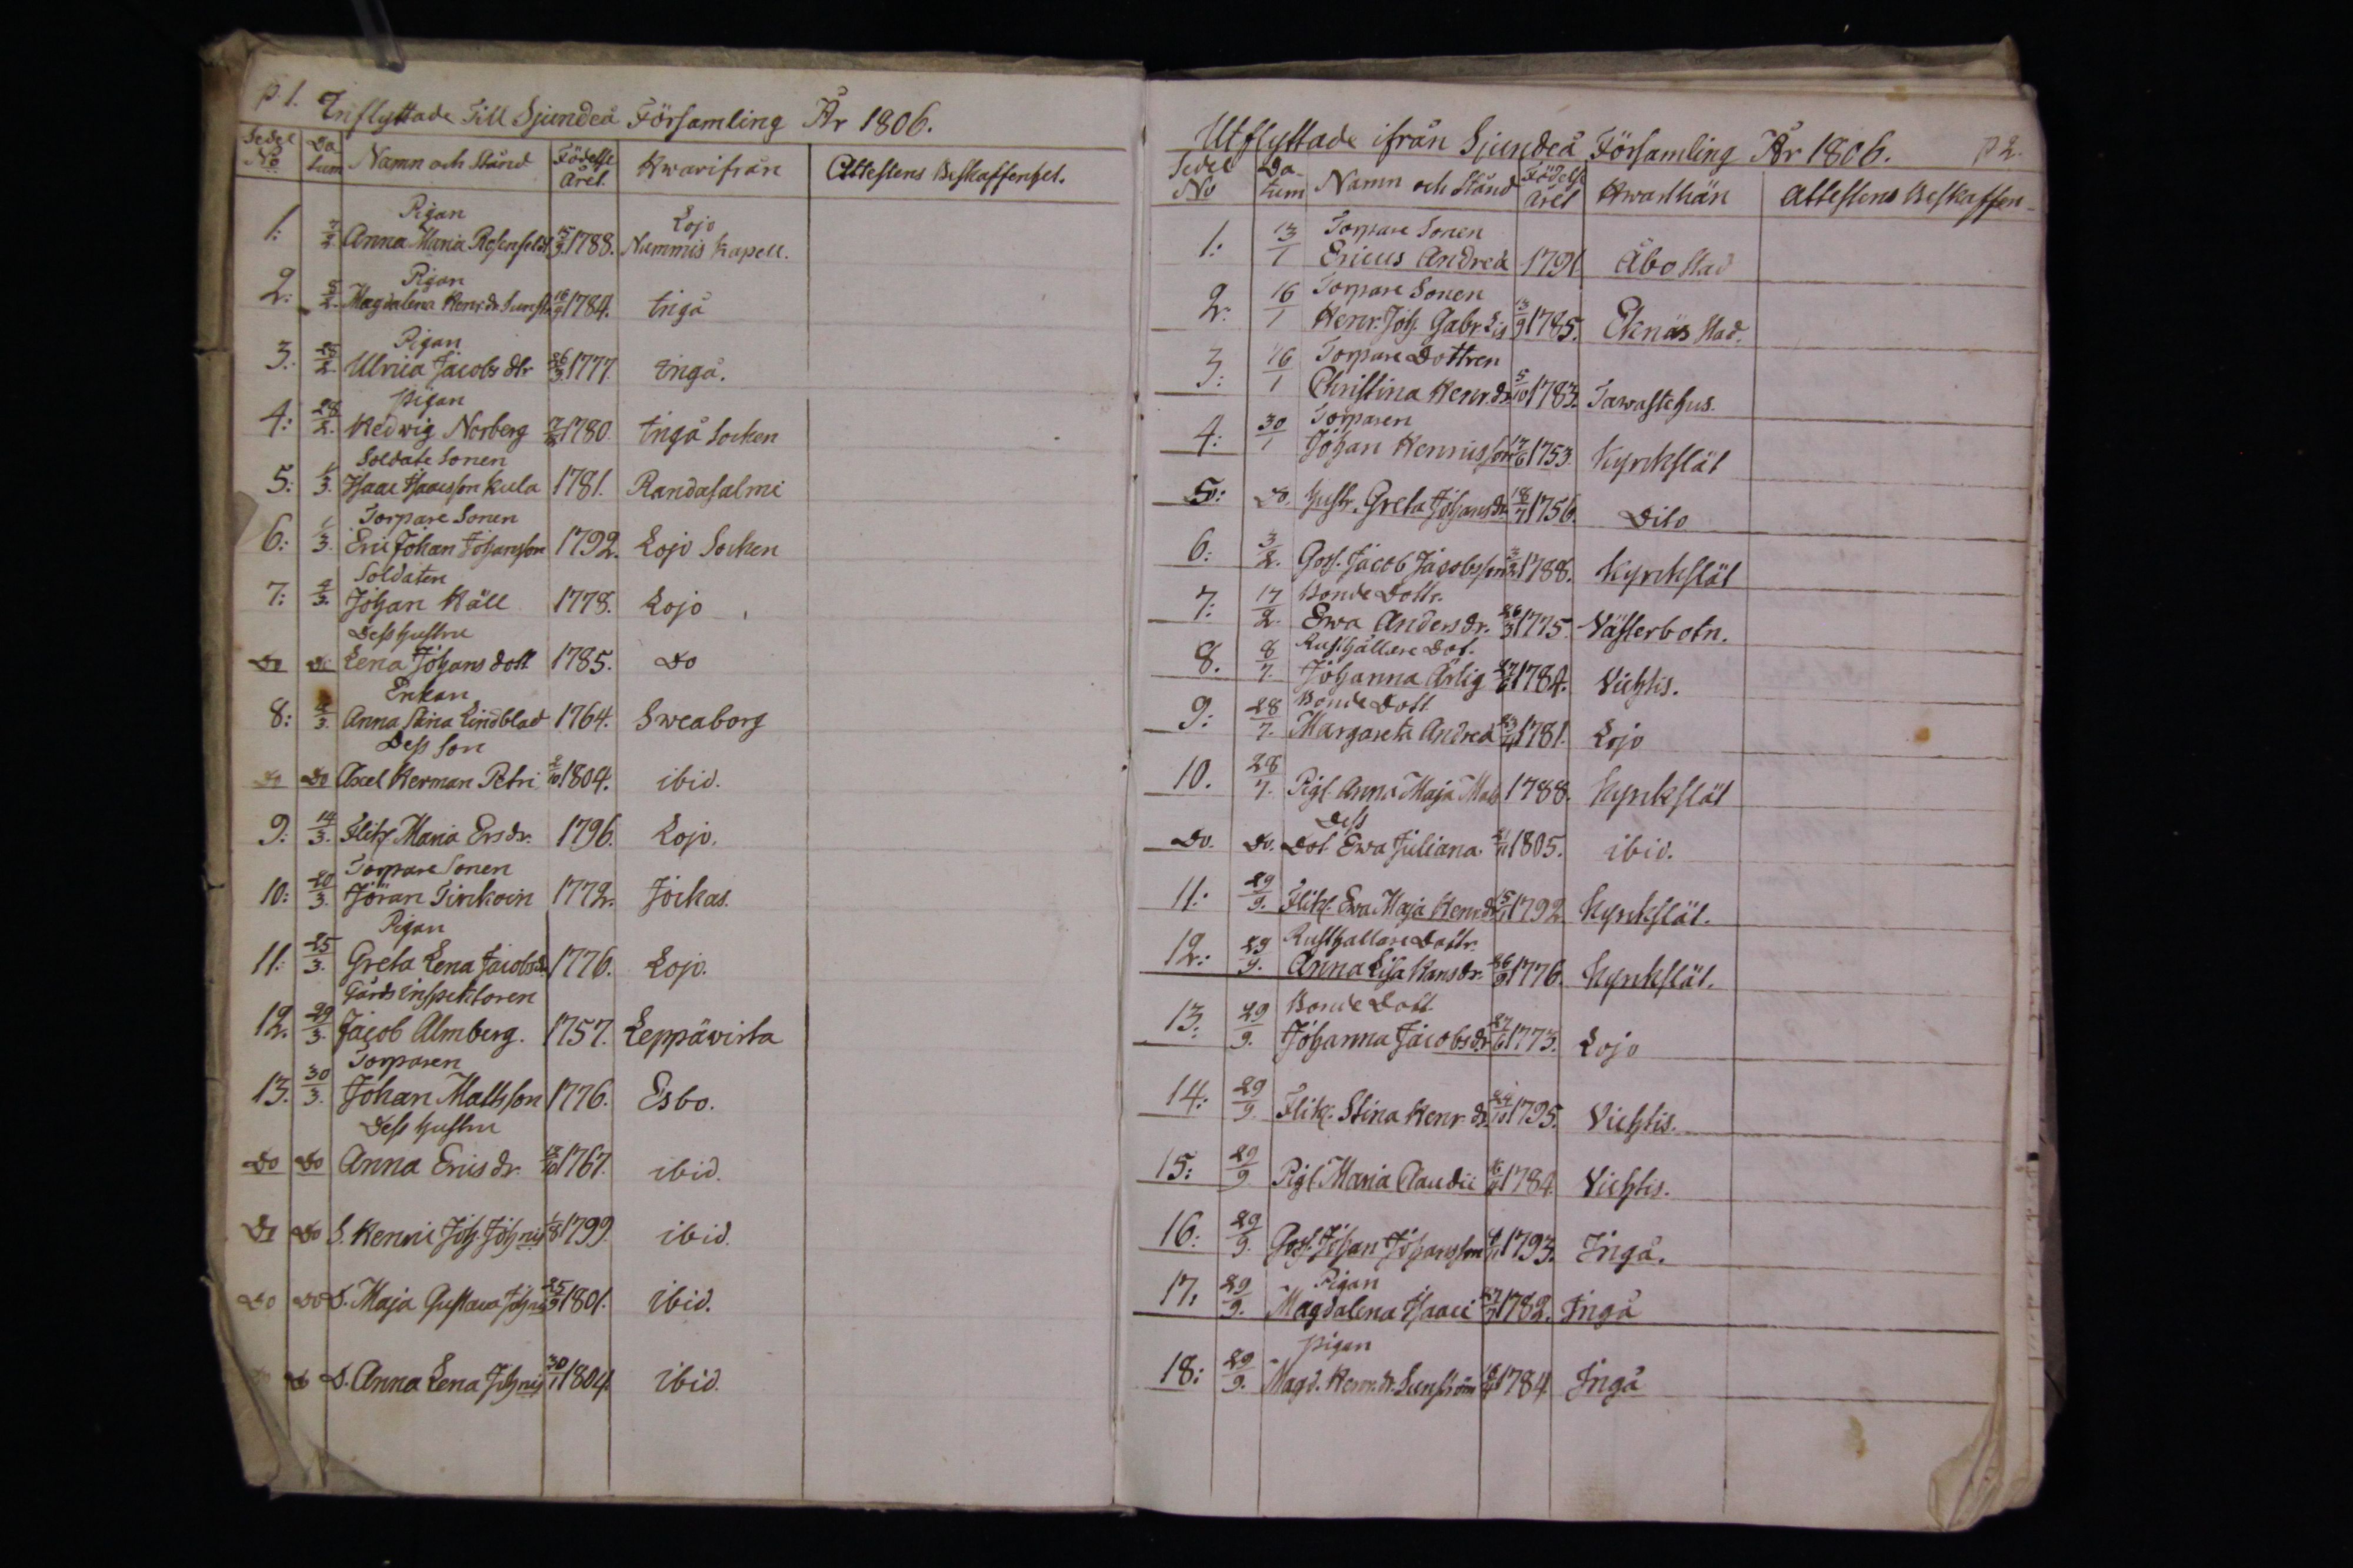 p 1. Inflyttade Till Sjundeå Församling År 1806.
Sedel No Datum Namn och Stånd Födelse Året Hwarifrån Attestens Beskaffenhet.
Pigan Lojo
1: Anna Maria Rosenfeldt 1788. Nummis Kapell.
Pigan
2: 5/2. Magdalena Henr. dr 1784. Ingå
Pigan
3: 25/2. Ulrica Jacobs dtr 26/3 1777. Ingå.
Pigan
4: 28/2. Hedwig Norberg 1780. Ingå Socken
Soldate Sonen
5: 1/3. Isaac Isacsson Kula 1781. Randasalmi
Torpare Sonen
6: 1/3. Eric Johan Johansson 1792. Lojo Socken
Soldaten
7: 4/3. Johan Käll 1778. Lojo
Dess Hustru
Do Do Lena Johans dott 1785. Do
Enkan
8: Anna Stina Lindblad 1764. Sweaborg
Dess Son
Do Do Axel Herman Petri 2/10 1804. ibid.
9: 14/3. Flik. Maria Ersdr. 1796. Lojo.
Torpare Sonen
10: 20/3. Jöran Tirikoin 1772. Jockas.
Pigan
11: 25/3. Greta Lena Jacobsd. 1776. Lojo.
Gårds Inspektoren
12. 29/3. Jacob Almberg. 1757. Leppäwirta
Torparen
13. 30/3. Johan Mattsson 1776. Esbo.
Dess Hustru
Do Do Anna Erics dr. 1767. ibid.
Do Do S. Henric Joh. Johnis 1/8 1799. ibid.
Do Do D. Maja Gustava Johnis 25/3 1801. ibid.
Do Do D. Anna Lena Johnis 30/1 1804. ibid.
Utflyttade ifrån Sjundeå Församling År 1806. p 2.
Sedel No Datum Namn och Stånd Födelse året Hwarthän Attestens Beskaffen-
Torpare Sonen
1: 13/1 Ericus Andreæ 1791 Åbo Stad
Torpare Sonen
2. 16/1 Henr. Joh. Gabr. 13/9 1785. Eknäs Stad.
Torpare Dottren
3: 16/1 Christina Henr. dr. 5/10 1783. Tawastehus.
Torparen
4: 30/1 Johan Henrisson 17/6 1753. Kyrkslät
5: Do. Hustr. Greta Johans dr 18/7 1756. Dito
6: 3/2. Goss. Jacob Jacobsson 1788. Kyrkslät
Bonde Dottr.
7: 17/2. Ewa Anders dr. 26/3 1775. Västerbotn.
Rusthållare Dot.
8. 8/7. Johanna Ärlig 1784. Vichtis.
Bonde Dott
9: 28/7. Margareta Andreæ 1781. Lojo
10. 28/7. Pig. Anna Maja Mats 1788. Kyrkslät
Dess
Do. Do. Dot. Ewa Juliana 1805. ibid.
11: 29/9. Flik. Ewa Maja Henr. dr 1792 Kyrkslät.
Rusthållare Dottr.
12: 29/9. Anna Lisa Hans dr. 26/9 1776. Kyrkslät.
Bonde Dott.
13. 29/9. Johanna Jacobs dr 27/6 1773. Lojo
14: 29/9. Flik. Stina Henr. dr. 24/10 1795. Vichtis.
15: 29/9 Pig. Maria Claudii 1784 Vichtis.
16: 29/9. Goss. Johan Johansson 1793. Ingå.
Pigan
17. 29/9. Magdalena Isaaci 1782. Ingå
Pigan
18: 29/9. Magd. Henr. dr. Sunström 1784 Ingå